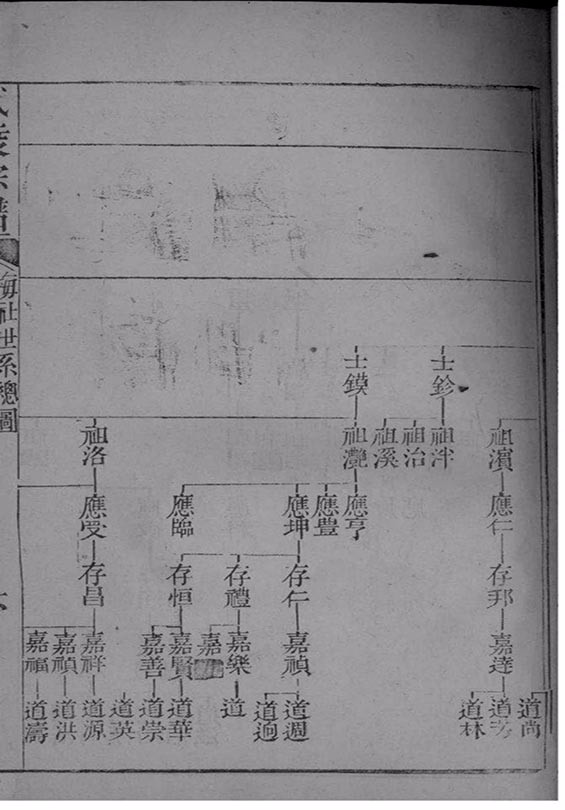 士鈐
士鏌
祖濱
祖泮
祖治
祖溪
祖灔
祖洛
應仁
應亨
應豊
應坤
應臨
應受
存邦
存仁
存禮
存恒
存昌
嘉達
嘉禎
嘉樂
嘉
嘉賢
嘉善
嘉祥
嘉禎
嘉福
道尚
道芳
道林
道週
道迥
道
道華
道崇
道英
道源
道洪
道濤
宗譜
海社世系總圖